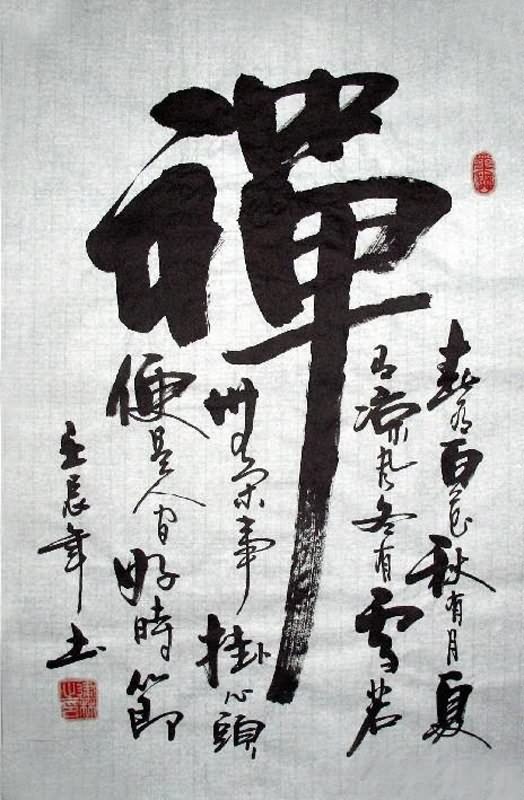 禪
春有百花秋有月夏
有凉風冬有雪若
無閑事掛心頭
便是人間好時節
壬辰年